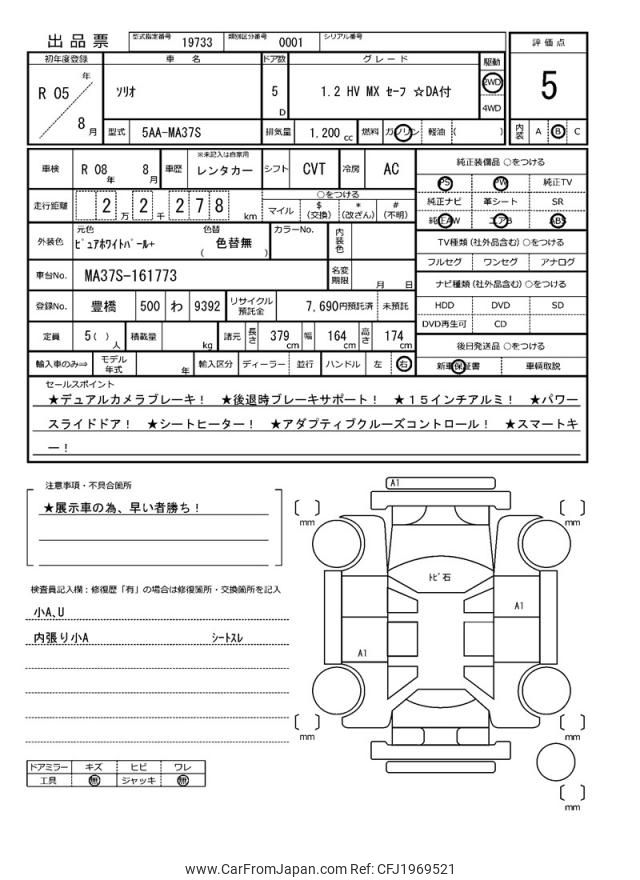 出品票 型式指定番号 19733 類別区分番号 0001 シリアル番号
評価点
5
内装 A B C
初年度登録 車名 ドア数 グレード 駆動
R 05 年 8 月 ソリオ 5 D 1.2 HV MX セーフ ☆DA付 2WD 4WD
型式 5AA-MA37S 排気量 1.200 cc 燃料 ガソリン 軽油 ( )
車検 R 08 年 8 月 車歴 ※未記入は自家用 レンタカー シフト CVT 冷房 AC
走行距離 2 万 2 千 2 7 8 km ○をつける
マイル $ (交換) * (改ざん) # (不明)
外装色 元色 ピュアホワイトパール+ 色替 ( 色替無 ) カラーNo. 内装色
車台No. MA37S-161773 名変期限 月 日
登録No. 豊橋 500 わ 9392 リサイクル預託金 7,690円預託済 未預託
定員 5( ) 人 積載量 kg 諸元 長さ 379 cm 幅 164 cm 高さ 174 cm
輸入車のみ⇒ モデル年式 年 輸入区分 ディーラー 並行 ハンドル 左 右
純正装備品 ○をつける
PS PW 純正TV
純正ナビ 革シート SR
純正AW エアB ABS
TV種類 (社外品含む) ○をつける
フルセグ ワンセグ アナログ
ナビ種類 (社外品含む) ○をつける
HDD DVD SD
DVD再生可 CD
後日発送品 ○をつける
新車保証書 車輌取説
セールスポイント
★デュアルカメラブレーキ! ★後退時ブレーキサポート! ★15インチアルミ! ★パワー
スライドドア! ★シートヒーター! ★アダプティブクルーズコントロール! ★スマートキ
ー!
注意事項・不具合箇所
★展示車の為、早い者勝ち!
検査員記入欄:修復歴「有」の場合は修復箇所・交換箇所を記入
小A,U
内張り小A シートスレ
ドアミラー キズ ヒビ ワレ
工具 無 ジャッキ 無
A1
mm
mm
トビ石
A1
A1
mm
mm
mm
www.CarFromJapan.com Ref: CFJ1969521